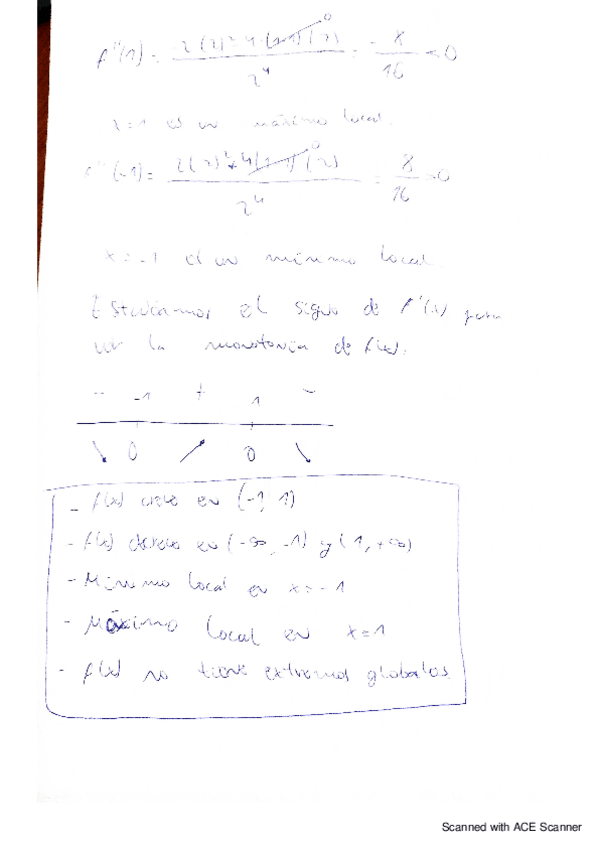 f''(1) = -2(2)²-4·(1-1)(2) / 2⁴ = -8/16 <0
x=1 es un máximo local.
f''(-1) = 2(2)²+4(1-1)(2) / 2⁴ = 8/16 >0
x=-1 es un mínimo local.
Estudiamos el signo de f'(x) para
ver la monotonía de f(x).
- -1 + 1 -
↘ 0 ↗ 0 ↘
- f(x) crece en (-1, 1)
- f(x) decrece en (-∞, -1) y (1, +∞)
- Mínimo local en x=-1
- Máximo local en x=1
- f(x) no tiene extremos globales
Scanned with ACE Scanner